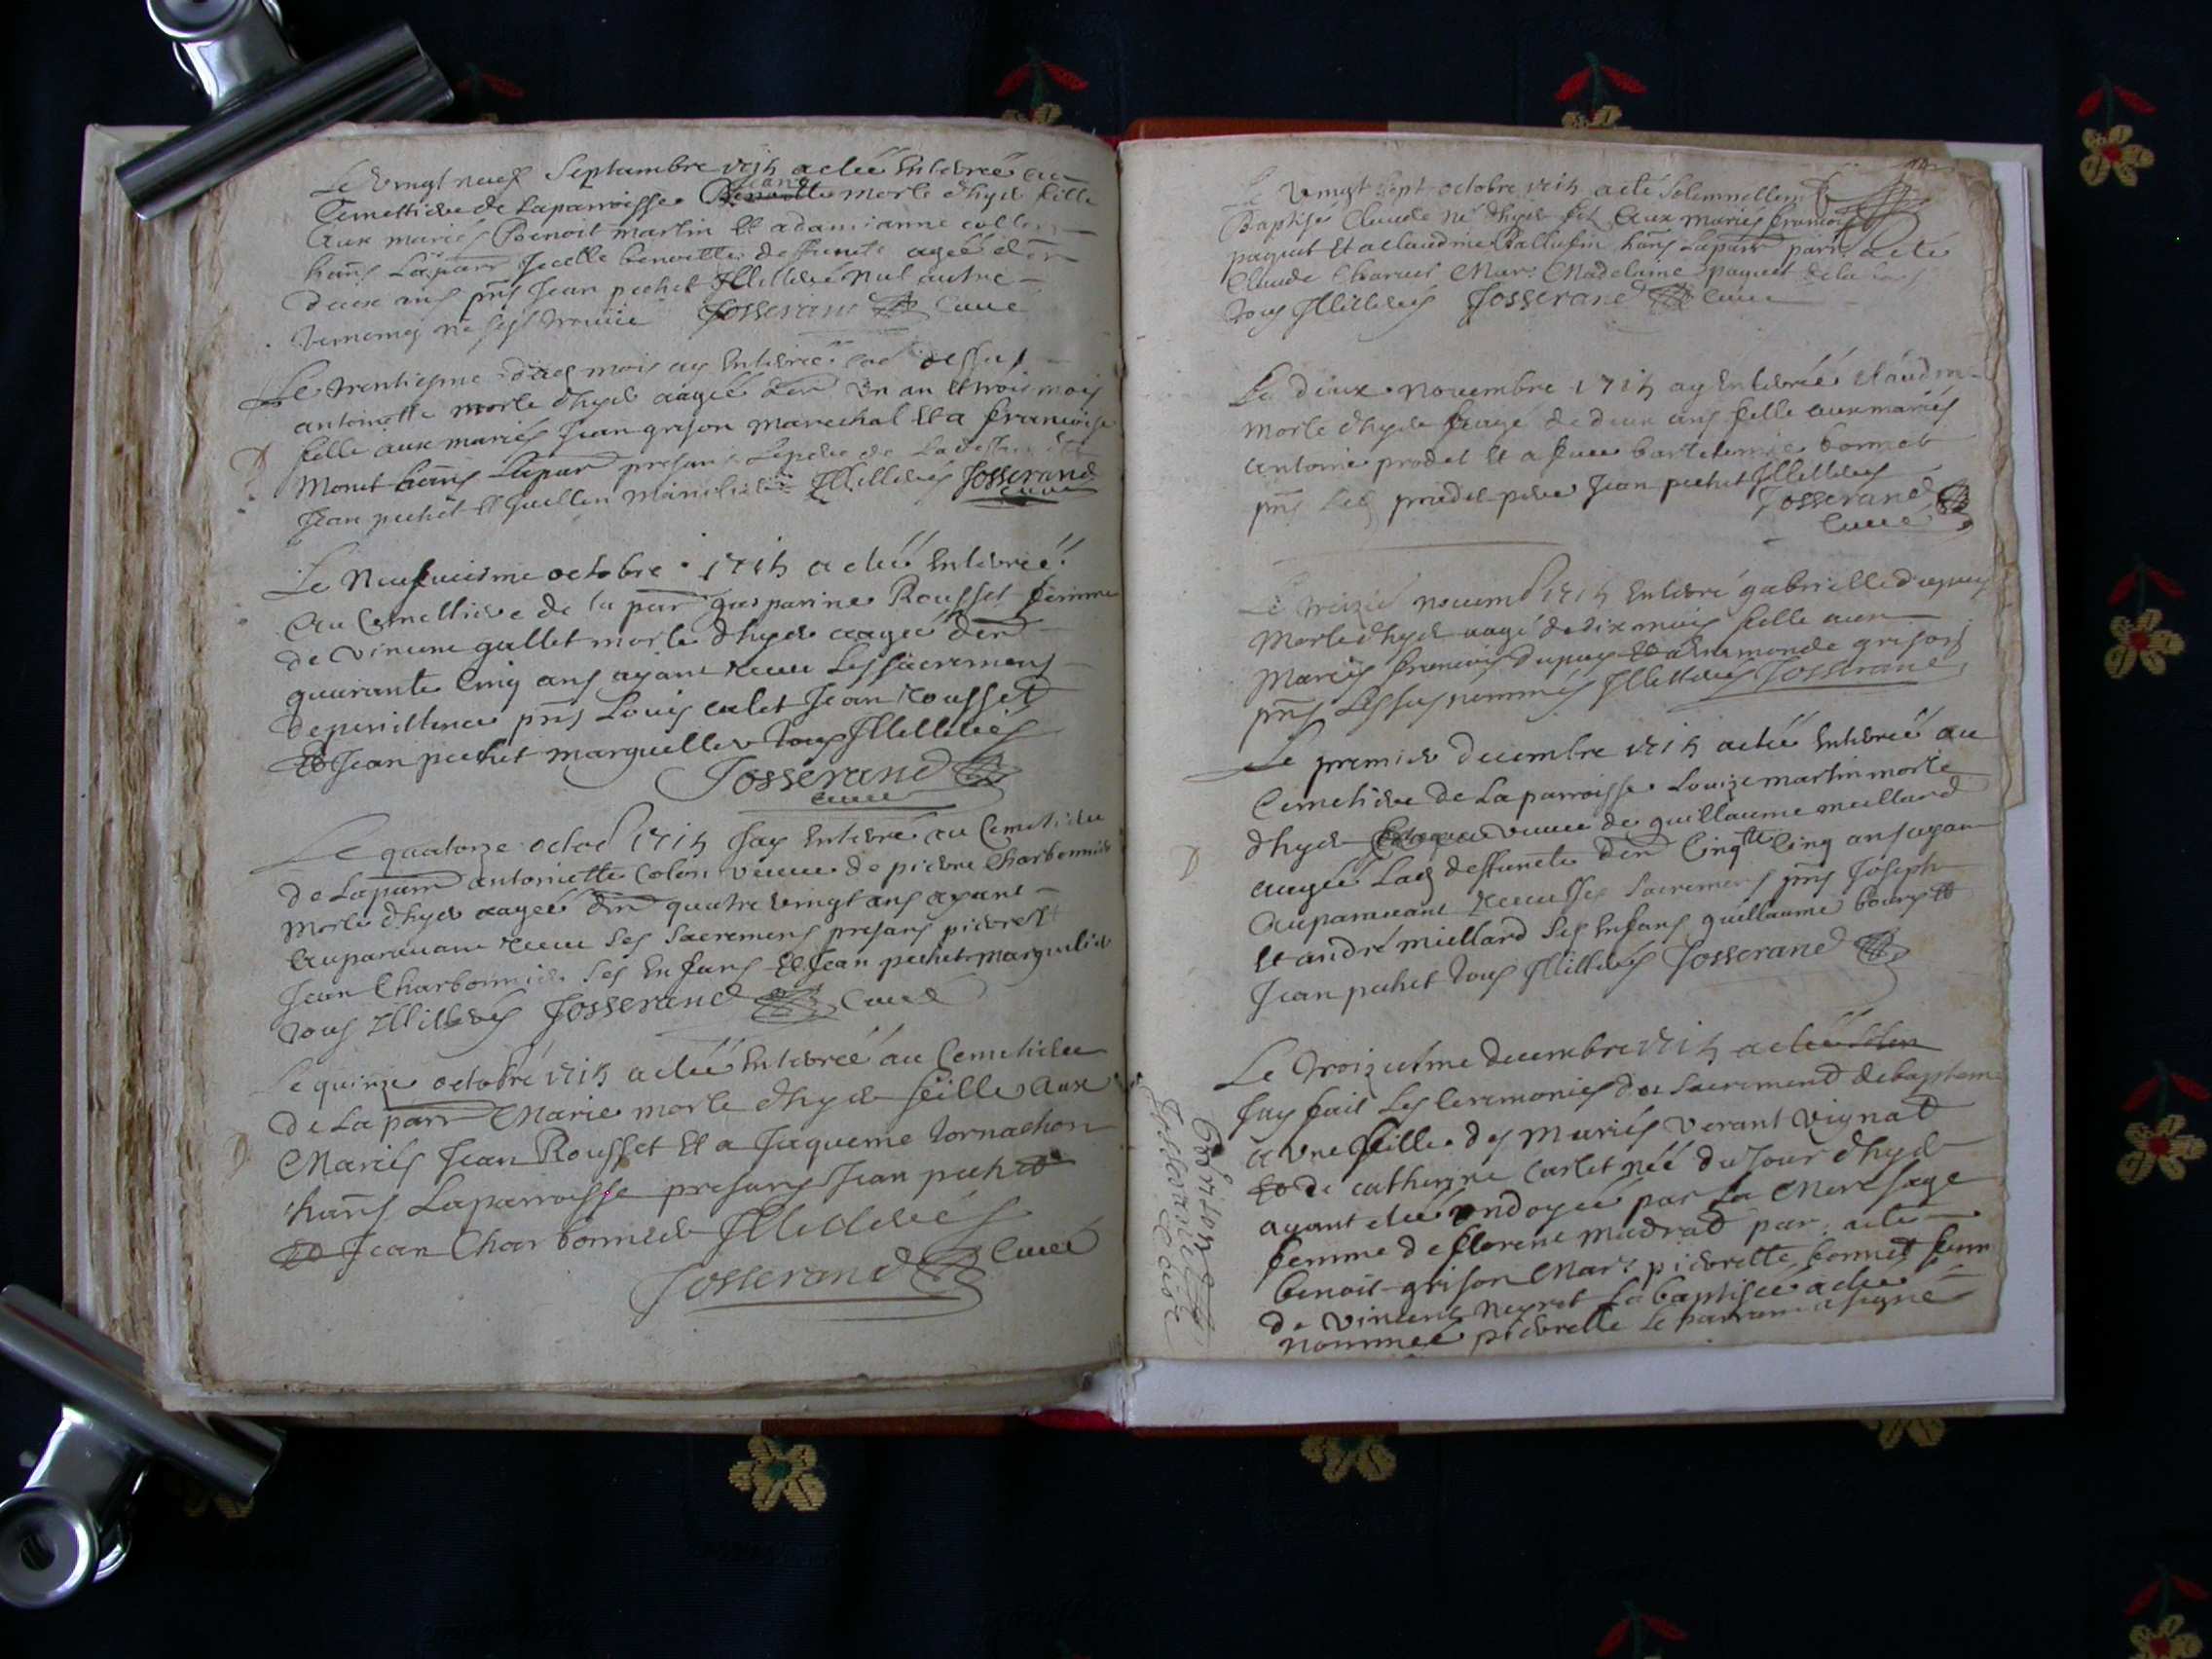 Le vingt neuf Septambre 1715 a eteé Enterreé au
Cemettiere de La parroisse Benoitte morte d'hyer fille
Jeane
aux mariés Benoit martin Et a damianne collon
hañs La parr Jcelle benoitte deffunte ageé d'En
deux ans pñs Jean pechet Jllitteré nul autre
temomg ne sest trouvé Josserand Curé
Le trentiesme dud mois ay Enterreé au dessus
antoinette morte d'hyer aageé d'En Un an Et trois mois
fille aux mariés Jean grison marechal Et a francoise
Monet hañs La parr presans Lepere de La deffunte
Jean pechet Et Jllitterés Josserand
Curé
Le Neufvieisme octobre 1715 a eteé Enterreé
au Cemettiere de la parr gasparine Rousset femme
de Vincent gallet morte d'hyer aageé d'En
quarante Cinq ans ayant receu Les sacremens
de penittence pñs Louis calet Jean rousset
Et Jean pechet marguellier tous Jllitterés
Josserand
Curé
Le quatorze octob 1715 Jay Enterré au Cemetiere
de La parr antoinette Colon veuve de pierre Charbonnier
Morte d'hyer aageé d'En quatre vingt ans ayant
auparavant receu Les Sacremens presans pierre Et
Jean Charbonnier Ses Enfans Et Jean pechet marguelier
tous Jllitterés Josserand Curé
Le quinze octobre 1715 a eteé Enterreé au Cemetiere
de La parr Marie morte d'hyer feille aux
Mariés Jean Rousset Et a Jaqueme tornachon
hañs La parroisse presans Jean pechet
Et Jean Charbonnier Jllitterés
Josserand Curé
Le vingt Sept octobre 1715 a eté Solemnellem
Baptisé Claude né d'hyer fils aux mariés francois
paquet Et a claudine hañs La parr parr a eté
Claude Charvet Marr Madelaine paquet de la
tous Jllitterés Josserand Curé
Le deux novembre 1715 ay Enterreé Claudine
morte d'hyer aagé de deux ans fille aux mariés
antoine prodet Et a feue bartelemie bonnet
pñs Led prodet pere Jean pechet Jllitterés
Josserand
Curé
Le treizie novemb 1715 Enterré gabrielle dupuy
Morte d'hyer aagé de dix mois fille aux
Mariés francois dupuy Et a Ennemonde grison
pñs Les susnommés Jllitterés Josserand
Le premier decembre 1715 a eteé Enterreé au
Cemetiere de La parroisse Louize martin morte
d'hyer veuve de guillaume miellard
aageé Lad deffuncte d'En Cinqtte Cinq ans ayant
auparavant receu Les Sacremens pñs Joseph
Et andré miellard Ses Enfans guillaume bourg Et
Jean pechet tous Jllitterés Josserand
Le troizieime decembre 1715 a eteé Solem
Jay fait Les Ceremonies du Sacrement de baptem
a Vne feille des mariés Verant Vignat
Et de catherine Carlet neé du Jour d'hyer
ayant eteé ondoyeé par La Mere sage
femme de florent madrat par a eté
benoit grison Marr pierrette bonnet fem
de Vincent neyret La baptiseé a eteé
nommeé pierrette Le parrain a signé
B Grison
Josserand Curé